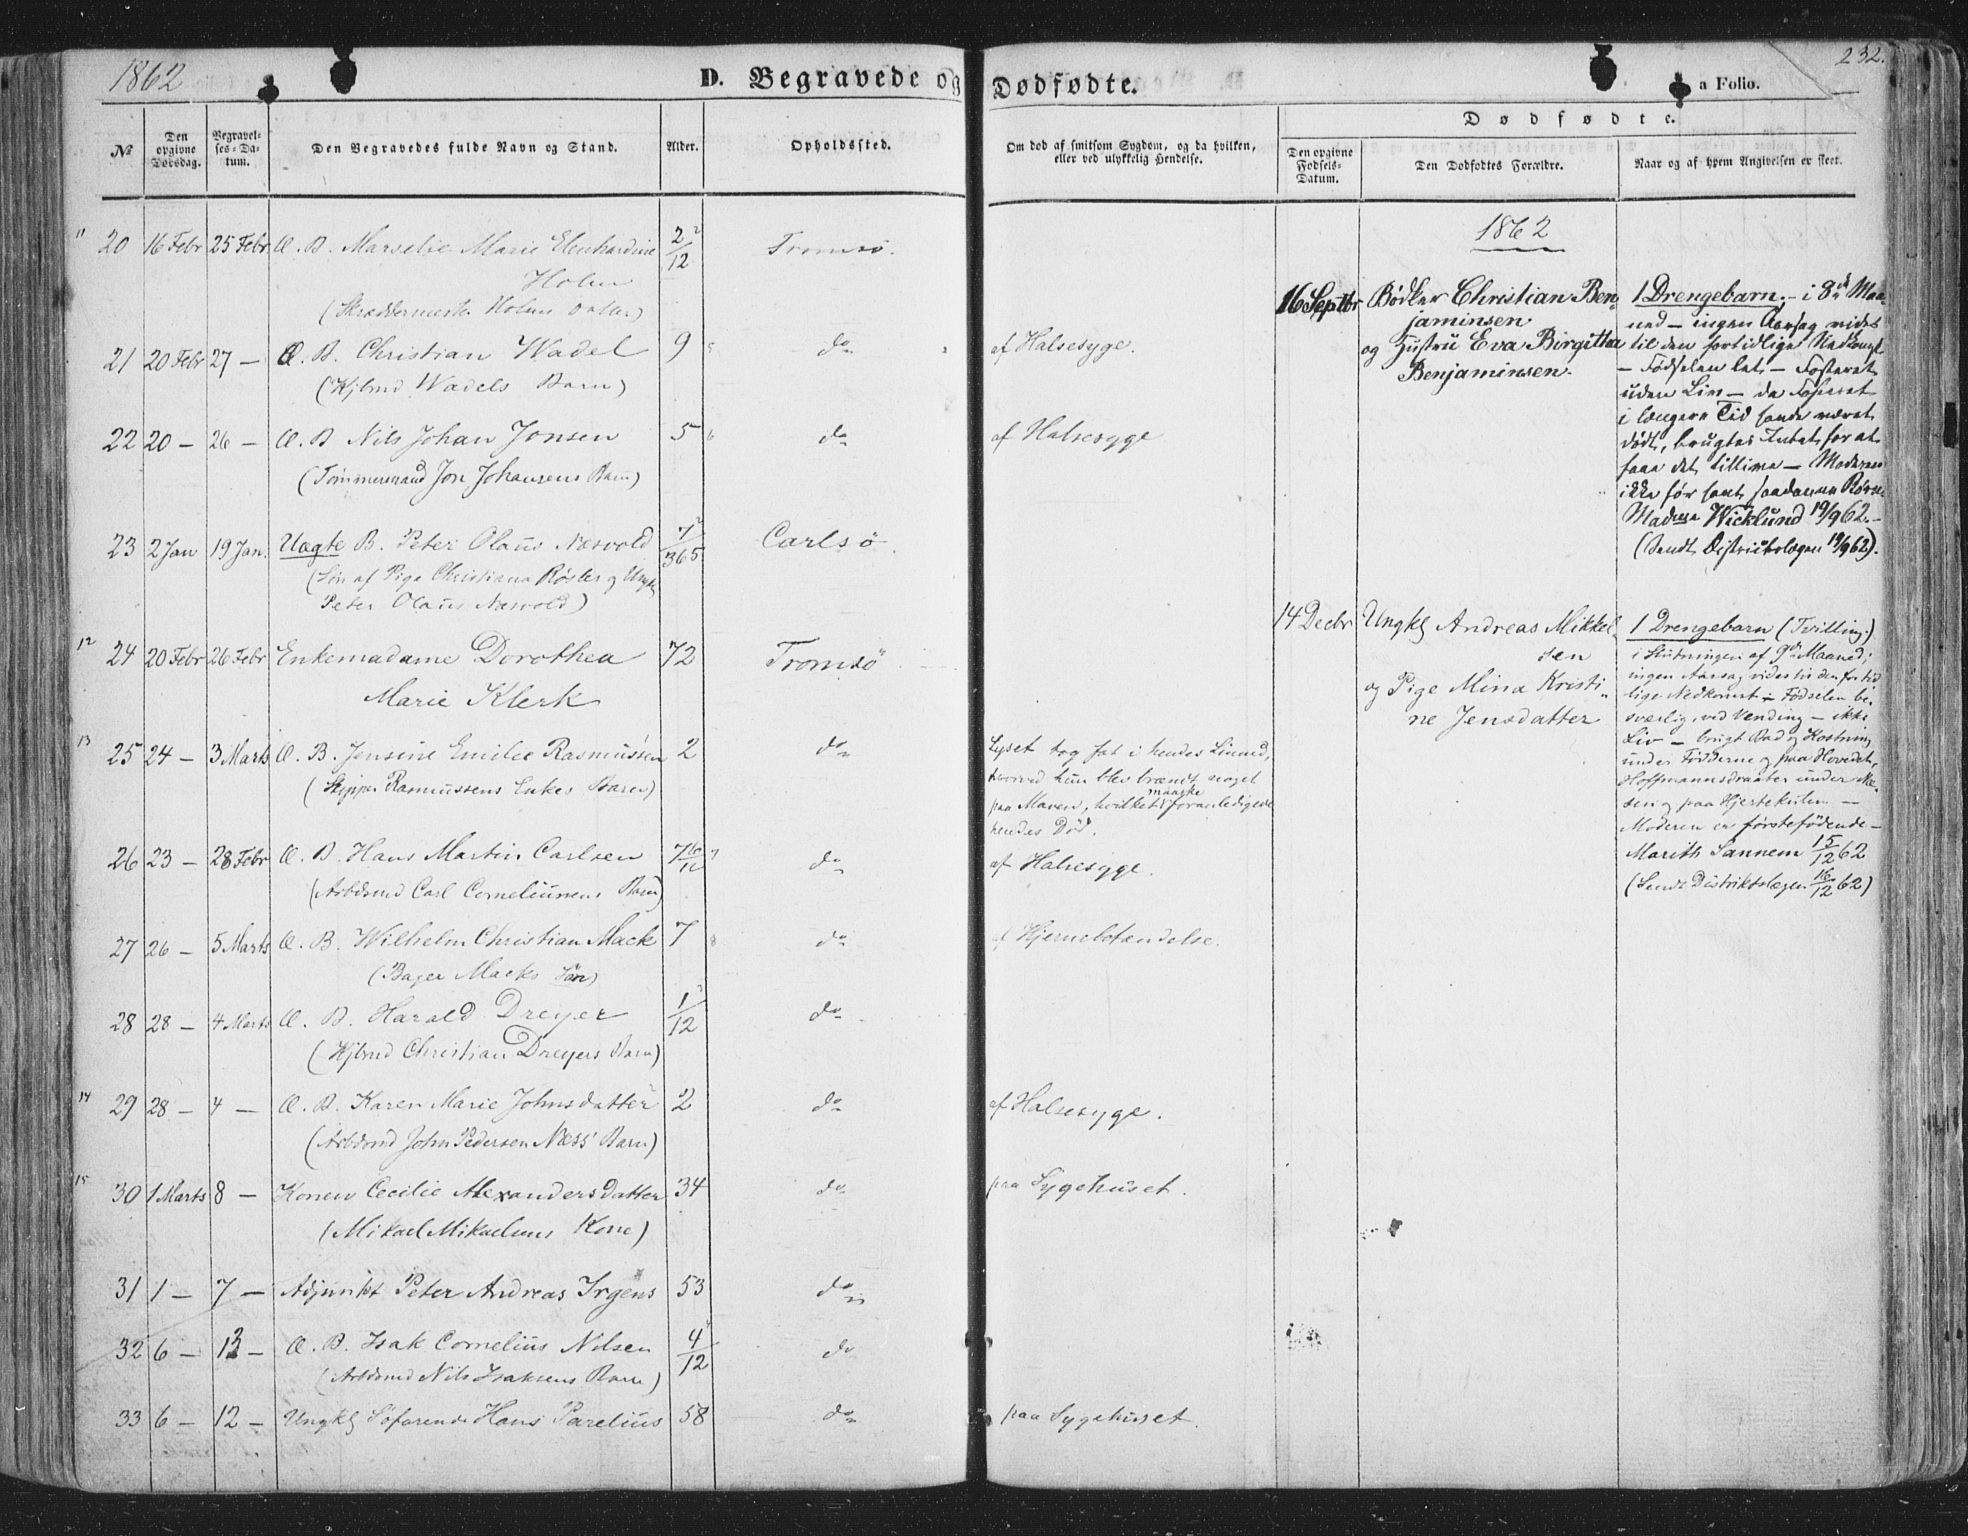 1862
D. Begravede og Dødfødte.
232.
a Folio.
Nº
Den opgivne Dødsdag.
Begravelses-Datum.
Den Begravedes fulde Navn og Stand.
Alder.
Opholdssted.
Om død af smitsom Sygdom, og da hvilken, eller ved ulykkelig Hendelse.
Dødfødte.
Den opgivne Fødsels-Datum.
Den Dødfødtes Forældre.
Naar og af hvem Angivelsen er skeet.
11 20 16 Febr 25 Febr Æ. B. Marselie Marie Ebenhardine 2/12 Tromsø.
Holm
(Skræddermester Holms Datter)
21 20 Febr 27 — Æ. B. Christian Wadel 9 do af Halsesyge.
(Kjbmd Wadels Barn)
22 20 — 26 — Æ. B. Nils Johan Jonsen 5 do af Halsesyge
(Tømmermand Jon Johansens Barn)
23 2 Jan 19 Jan. Uægte B. Peter Olaus Næsvold 7/365 Carlsø.
(Søn af Pige Christiana Røsler og Ungkl
Peter Olaus Næsvold)
12 24 20 Febr 26 Febr Enkemadame Dorothea 72 Tromsø
Marie Klerk
13 25 24 — 3 Marts Æ. B. Jensine Emilie Rasmussen 2 do Lyset tog fat i hendes Linned,
(Skipper Rasmussens Enkes Barn) hvorved hun blev brændt noget
paa Maven, hvilket maaske foranledigede
hendes Død.
26 23 — 28 Febr Æ. B. Hans Martin Carlsen 7 do af Halsesyge.
(Arbdsmd Carl Corneliussens Barn)
27 26 — 5 Marts Æ. B. Wilhelm Christian Mack 7 do af Hjernebetændelse.
(Bager Macks Søn)
28 28 — 4 Marts Æ. B. Harald Dreyer 1/12 do
(Kjbmd Christian Dreyers Barn)
14 29 28 — 4 — Æ. B. Karen Marie Johnsdatter 2 do af Halsesyge.
(Arbdsmd John Pedersen Næss' Barn)
15 30 1 Marts 8 — Konen Cecilie Alexandersdatter 34 do paa Sygehuset.
(Mikael Mikaelsens Kone)
31 1 — 7 — Adjunkt Peter Andreas Irgens 53 do
32 6 — 13 — Æ. B. Isak Cornelius Nilsen 4/12 do
(Arbdsmd Nils Isaksens Barn)
33 6 — 12 — Ungkl Søfarende Hans Parelius 58 do paa Sygehuset.
1862
16 Septbr Bødker Christian Ben-
jaminsen
og Hustru Eva Birgitta
Benjaminsen.
1 Drengebarn, — i 8de Maa-
ned — ingen Aarsag vides
til den fortidlige Nedkomst
— Fødselen let — Fosteret
uden Liv — da Fosteret
i længere Tid havde været
dødt, brugtes Intet for at
faae det tillive — Moderen
ikke før havt saadanne Børn.
Madame Wicklund 19/9 62.
(Sendt Districtslægen 19/9 62).
14 Decbr Ungkl Andreas Mikkel-
sen
og Pige Mina Kristi-
ne Jensdatter
1 Drengebarn (Tvilling)
i Slutningen af 9de Maaned;
ingen Aarsag vides til den fortid-
lige Nedkomst — Fødselen be-
sværlig, ved Vending — ikke
Liv — brugt Bad og Kostning
under Fødderne og paa Hovedet,
Hoffmannsdraaber under Næ-
sen og paa Hjertekulen —
Moderen er førstefødende —
Marith Sannem 15/12 62
(Sendt Distriktslægen 16/12 62)